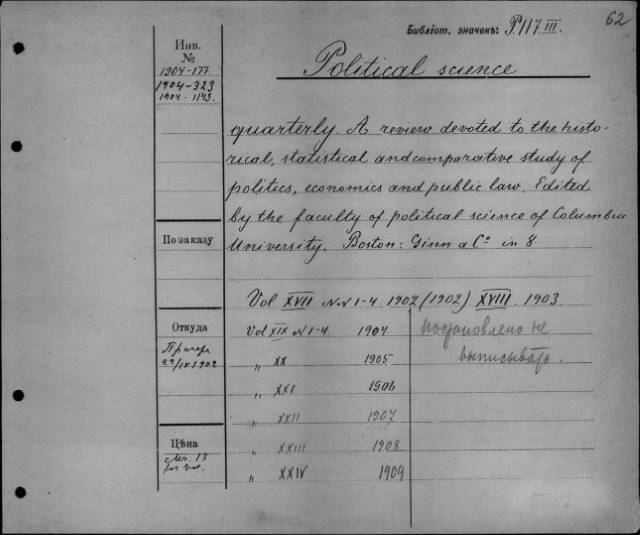 62
Библіот. значекъ: P.117 III.
Инв.
№
1904-177
1904-323
1904-1143.
Political science
quarterly. A review devoted to the histo-
rical, statistical and comparative study of
politics, economics and public law. Edited
by the faculty of political science of Columbia
University. Boston: Ginn a Cº in 8
По заказу
Vol XVII N.N 1-4. 1902 (1902) XVIII. 1903
Откуда
Vol XIX N 1-4 1904
постановлено не
выписывать.
/IX 1902
„ XX 1905
„ XXI 1906
„ XXII 1907
Цѣна
„ XXIII 1908
13
„ XXIV 1909